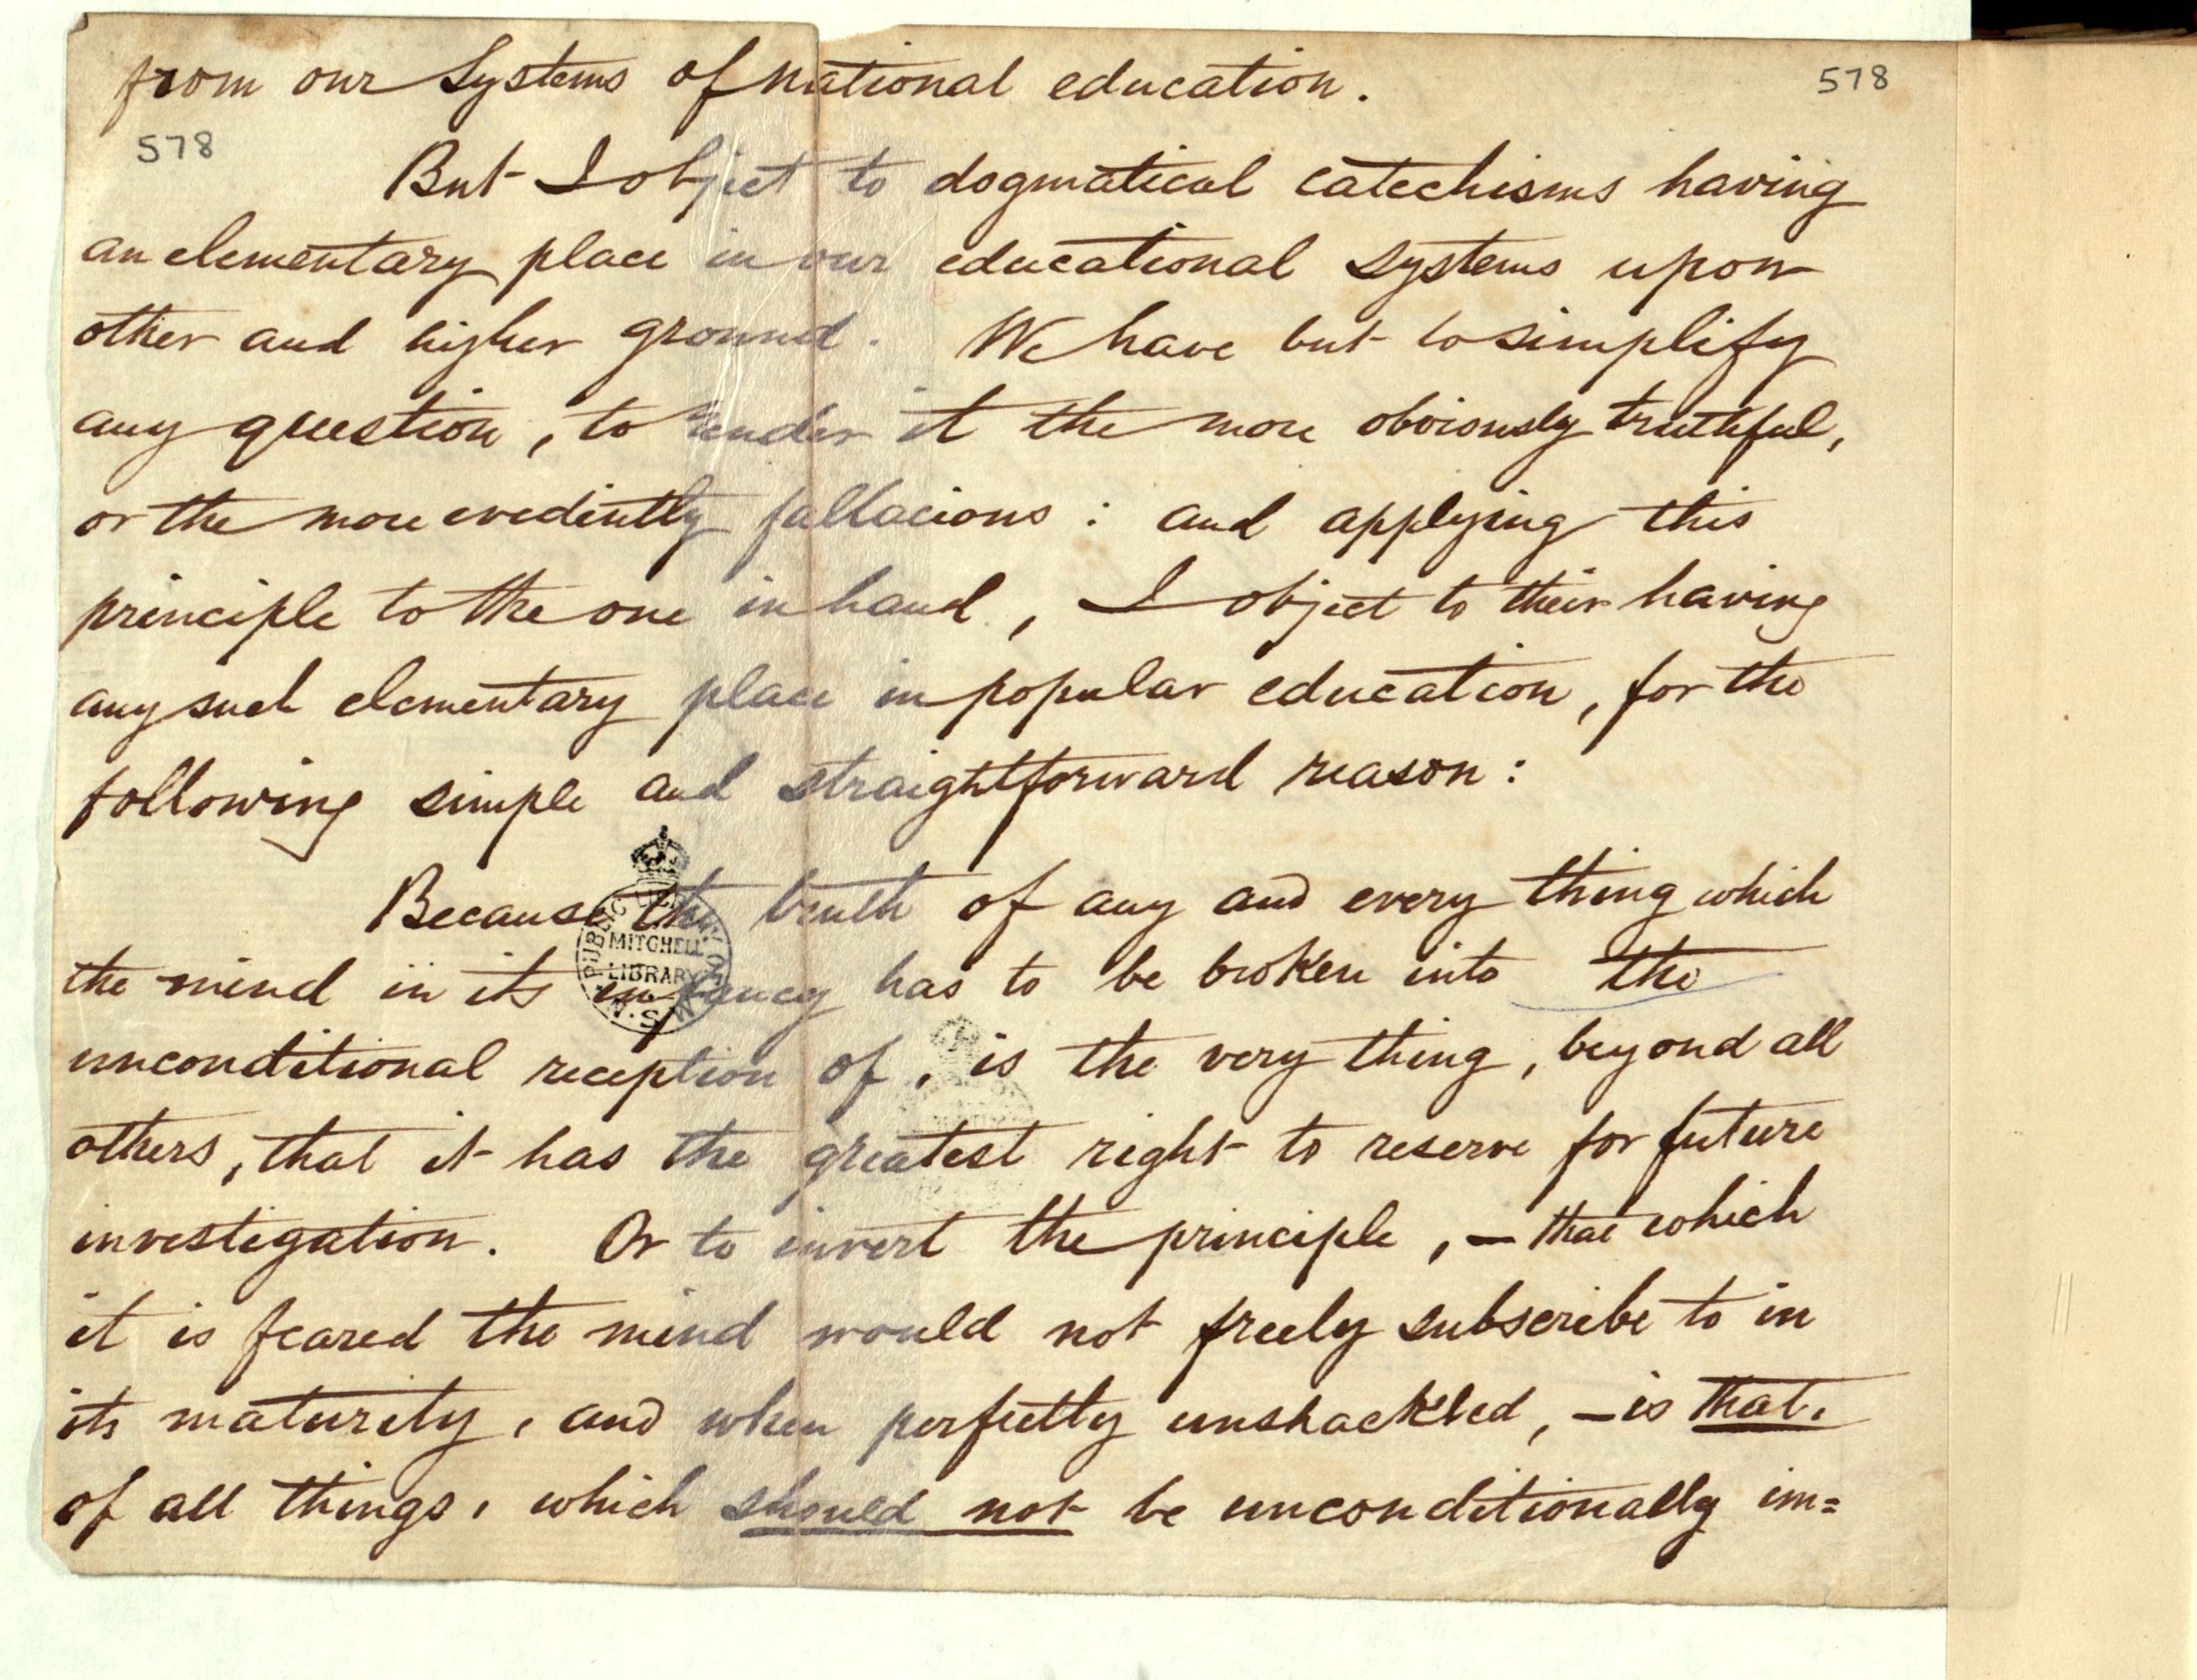 from our Systems of national education.
578
578
But I object to dogmatical catechisms having
an elementary place in our educational systems upon
other and higher ground. We have but to simplify
any question, to render it the more obviously truthful,
or the more evediently fallacious : and applying this
principle to the one in hand, I object to their having
any such elementary place in popular education, for the
following simple and straightforward reason :
Because the truth of any and every thing which
the mind in its infancy has to be broken into the
unconditional reception of, is the very thing, beyond all
others, that it has the greatest right to reserve for future
investigation. Or to invert the principle, – that which
it is feared the mind would not freely subscribe to in
its maturity, and when perfectly unshackled, – is that,
of all things, which should not be unconditionally im=
PUBLIC LIBRARY
MITCHELL
LIBRARY
N.S.W